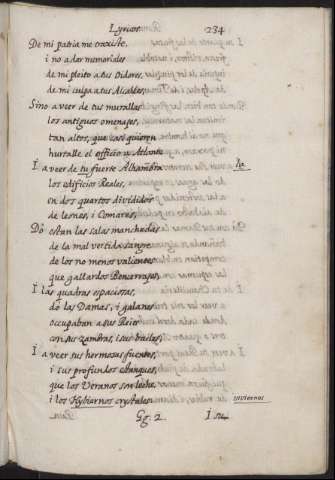 Lyricos 234
De mi patria me truxiste,
i no a dar memoriales
de mi pleito a tus Oidores,
de mi culpa a tus Alcaldes,
Sino a veer de tus murallas
los antiguos omenages,
tan altos, que casi quieren
hurtalle el officio a Atlante
I a veer de tu fuerte Alhambra
los edificios Reales,
en dos quartos divididos
de leones, i Comares,
Do estan las salas manchadas
de la mal vertida sangre
de los no menos valientes
que gallardos Bencerrages,
I las quadras espaciosas,
do las Damas, i galanes
occupaban a sus Reies
con sus zambras, i sus bailes;
I a veer sus hermosas fuentes,
i sus profundos estanques,
que los Veranos son leche,
i los Hybiernos crystales
inviernos
Gg. 2 I su